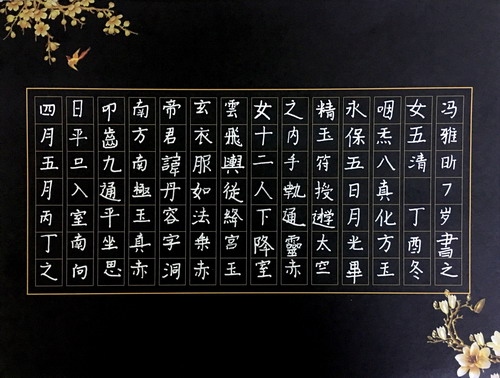 四月五月丙丁之
日平旦入室南向
叩齒九通平坐思
南方南極玉真赤
帝君諱丹容字洞
玄衣服如法乘赤
雲飛輿從絳宮玉
女十二人下降室
之内手執通靈赤
精玉符授太空
永保五日月光畢
咽炁八真化方玉
女五清 丁酉冬
冯雅昕7岁書之